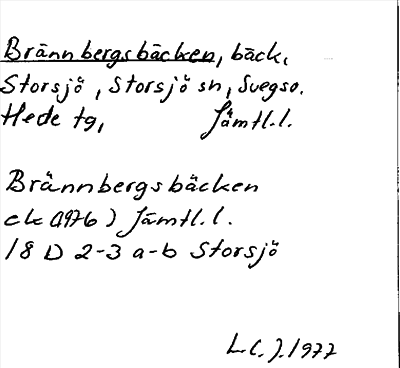 Brännbergsbäcken, bäck,
Storsjö, Storsjö sn, Svegso.
Hede tg, Jämtl.l.
Brännbergsbäcken
ek (1976) Jämtl.l.
18 D 2-3 a-b Storsjö
L.C.J. 1977